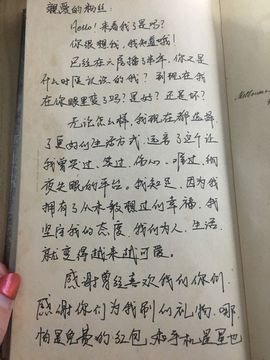 亲爱的粉丝:
Hello! 来看我了是吗?
你很想我,我知道哦!
已经在六房播3来年,你又是
什么时候认识的我?到现在我
在你眼里变了吗?是好?还是坏?
无论怎么样,我现在都选择
了更好的生活方式,远离了这个让
我曾哭过、笑过、伤心、难过、彻
夜失眠的平台。我知足,因为我
拥有了从未敢想过的幸福,我
坚定我的态度,我们为人、生活
就变得越来越可爱。
感谢曾经喜欢我的你们
感谢你们为我刷的礼物,哪
怕是免费的红包,和手机星星也